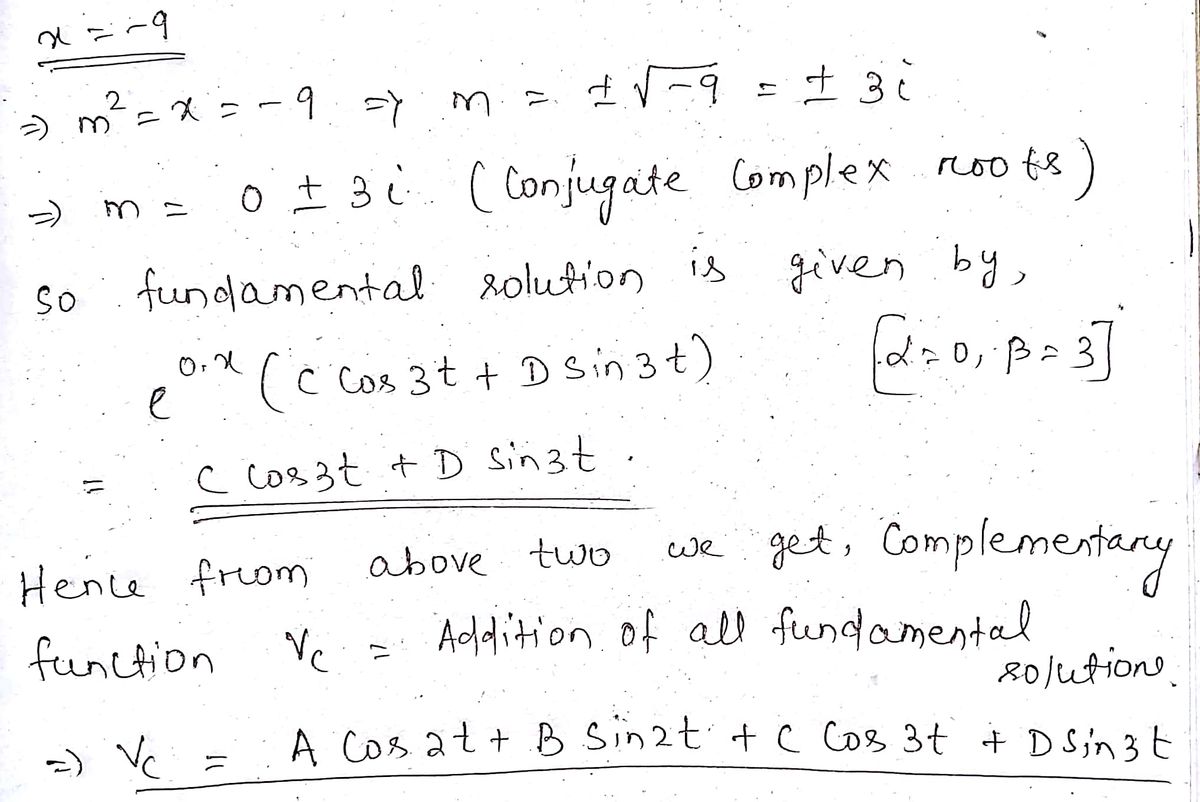 x = -9
⇒ m² = x = -9 ⇒ m = ± √-9 = ± 3i
⇒ m = 0 ± 3i (Conjugate Complex roots)
so fundamental solution is given by,
e^{0.x} (C Cos 3t + D Sin 3t) [α = 0, β = 3]
= C Cos 3t + D Sin 3t.
Hence from above two we get, Complementary
function Vc = Addition of all fundamental
solutions.
⇒ Vc = A Cos 2t + B Sin 2t + C Cos 3t + D Sin 3t